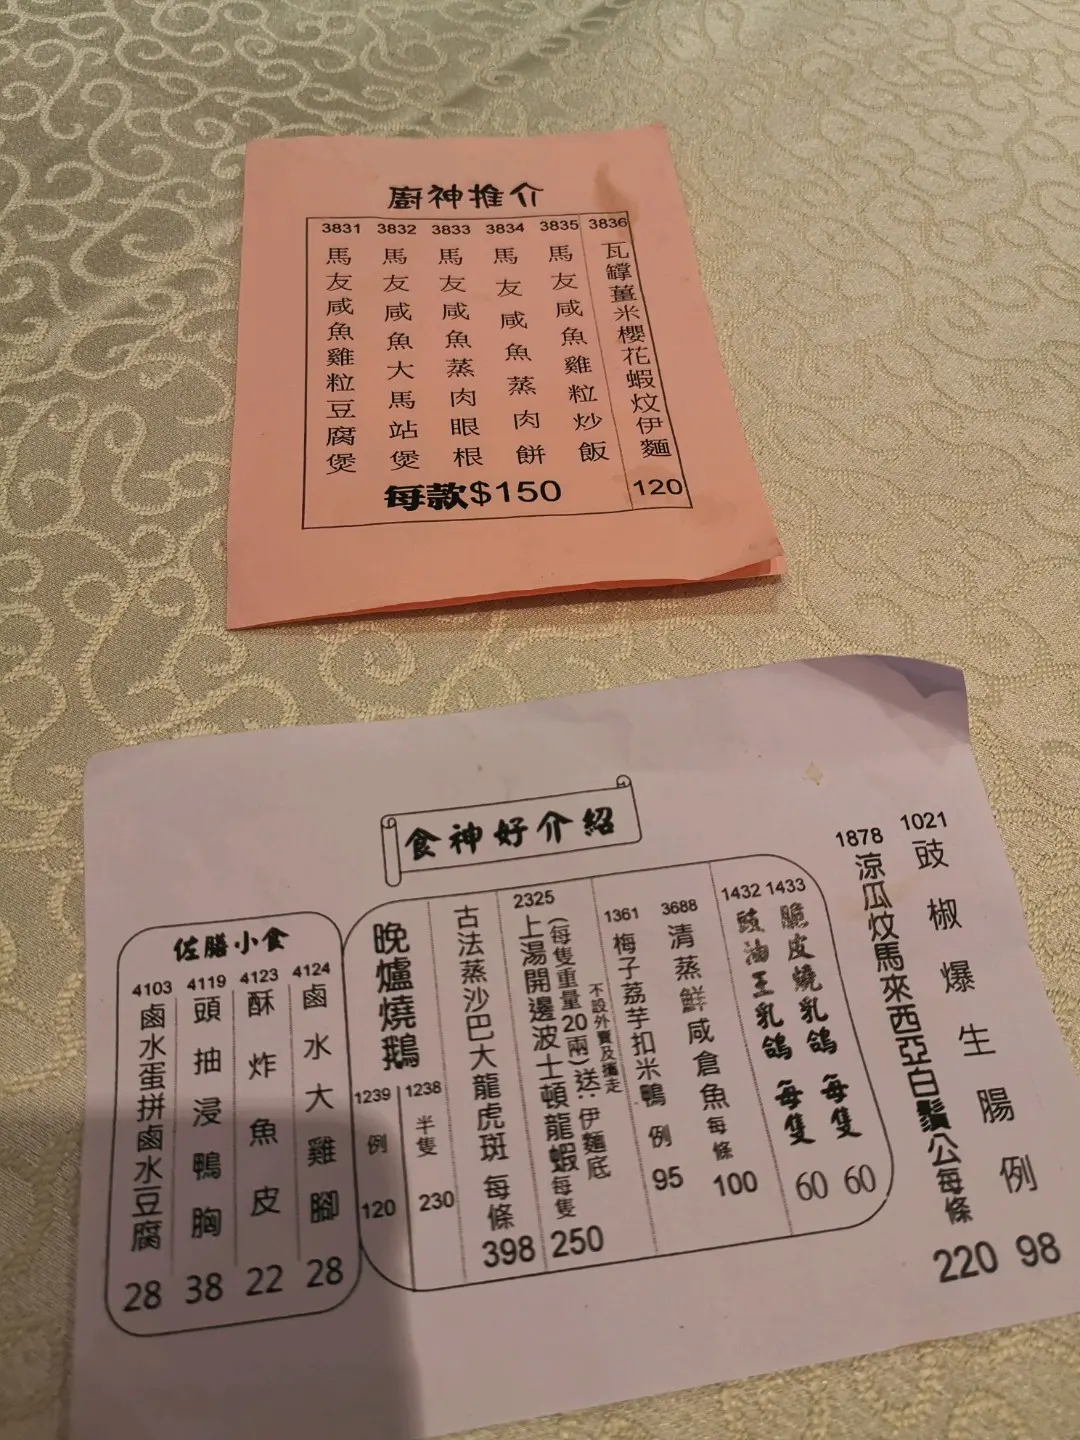 廚神推介
3831 3832 3833 3834 3835 3836
馬友咸魚雞粒豆腐煲
馬友咸魚大馬站煲
馬友咸魚蒸肉眼根
馬友咸魚蒸肉餅
馬友咸魚雞粒炒飯
每款$150
瓦罉薑米櫻花蝦炆伊麵
120
食神好介紹
1021
豉椒爆生腸 例
98
1878
涼瓜炆馬來西亞白鬚公每條
220
1433
脆皮燒乳鴿 每隻
60
1432
豉油王乳鴿 每隻
60
3688
清蒸鮮咸倉魚每條
100
1361
梅子荔芋扣米鴨 例
95
不設外賣及攜走
2325
(每隻重量20兩)送:伊麵底
上湯開邊波士頓龍蝦每隻
250
古法蒸沙巴大龍虎斑 每條
398
晚爐燒鵝
1239 1238
例 半隻
120 230
佐膳小食
4103 4119 4123 4124
鹵水蛋拼鹵水豆腐
28
頭抽浸鴨胸
38
酥炸魚皮
22
鹵水大雞腳
28